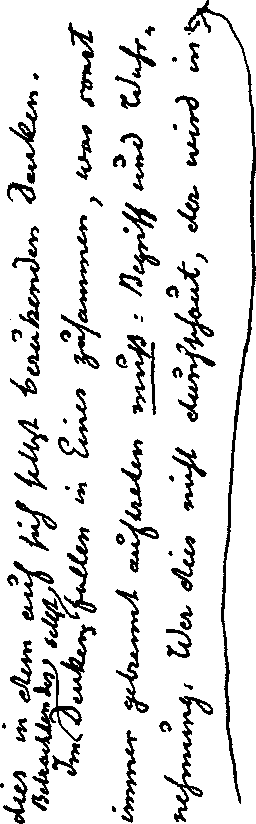 dies in dem auf sich selbst beruhenden Denken.
Betrachten des selbst
Im Denken fallen in Eines zusammen, was sonst
immer getrennt auftreten muß: Begriff und Wahr-
nehmung. Wer dies nicht durchschaut, der wird in